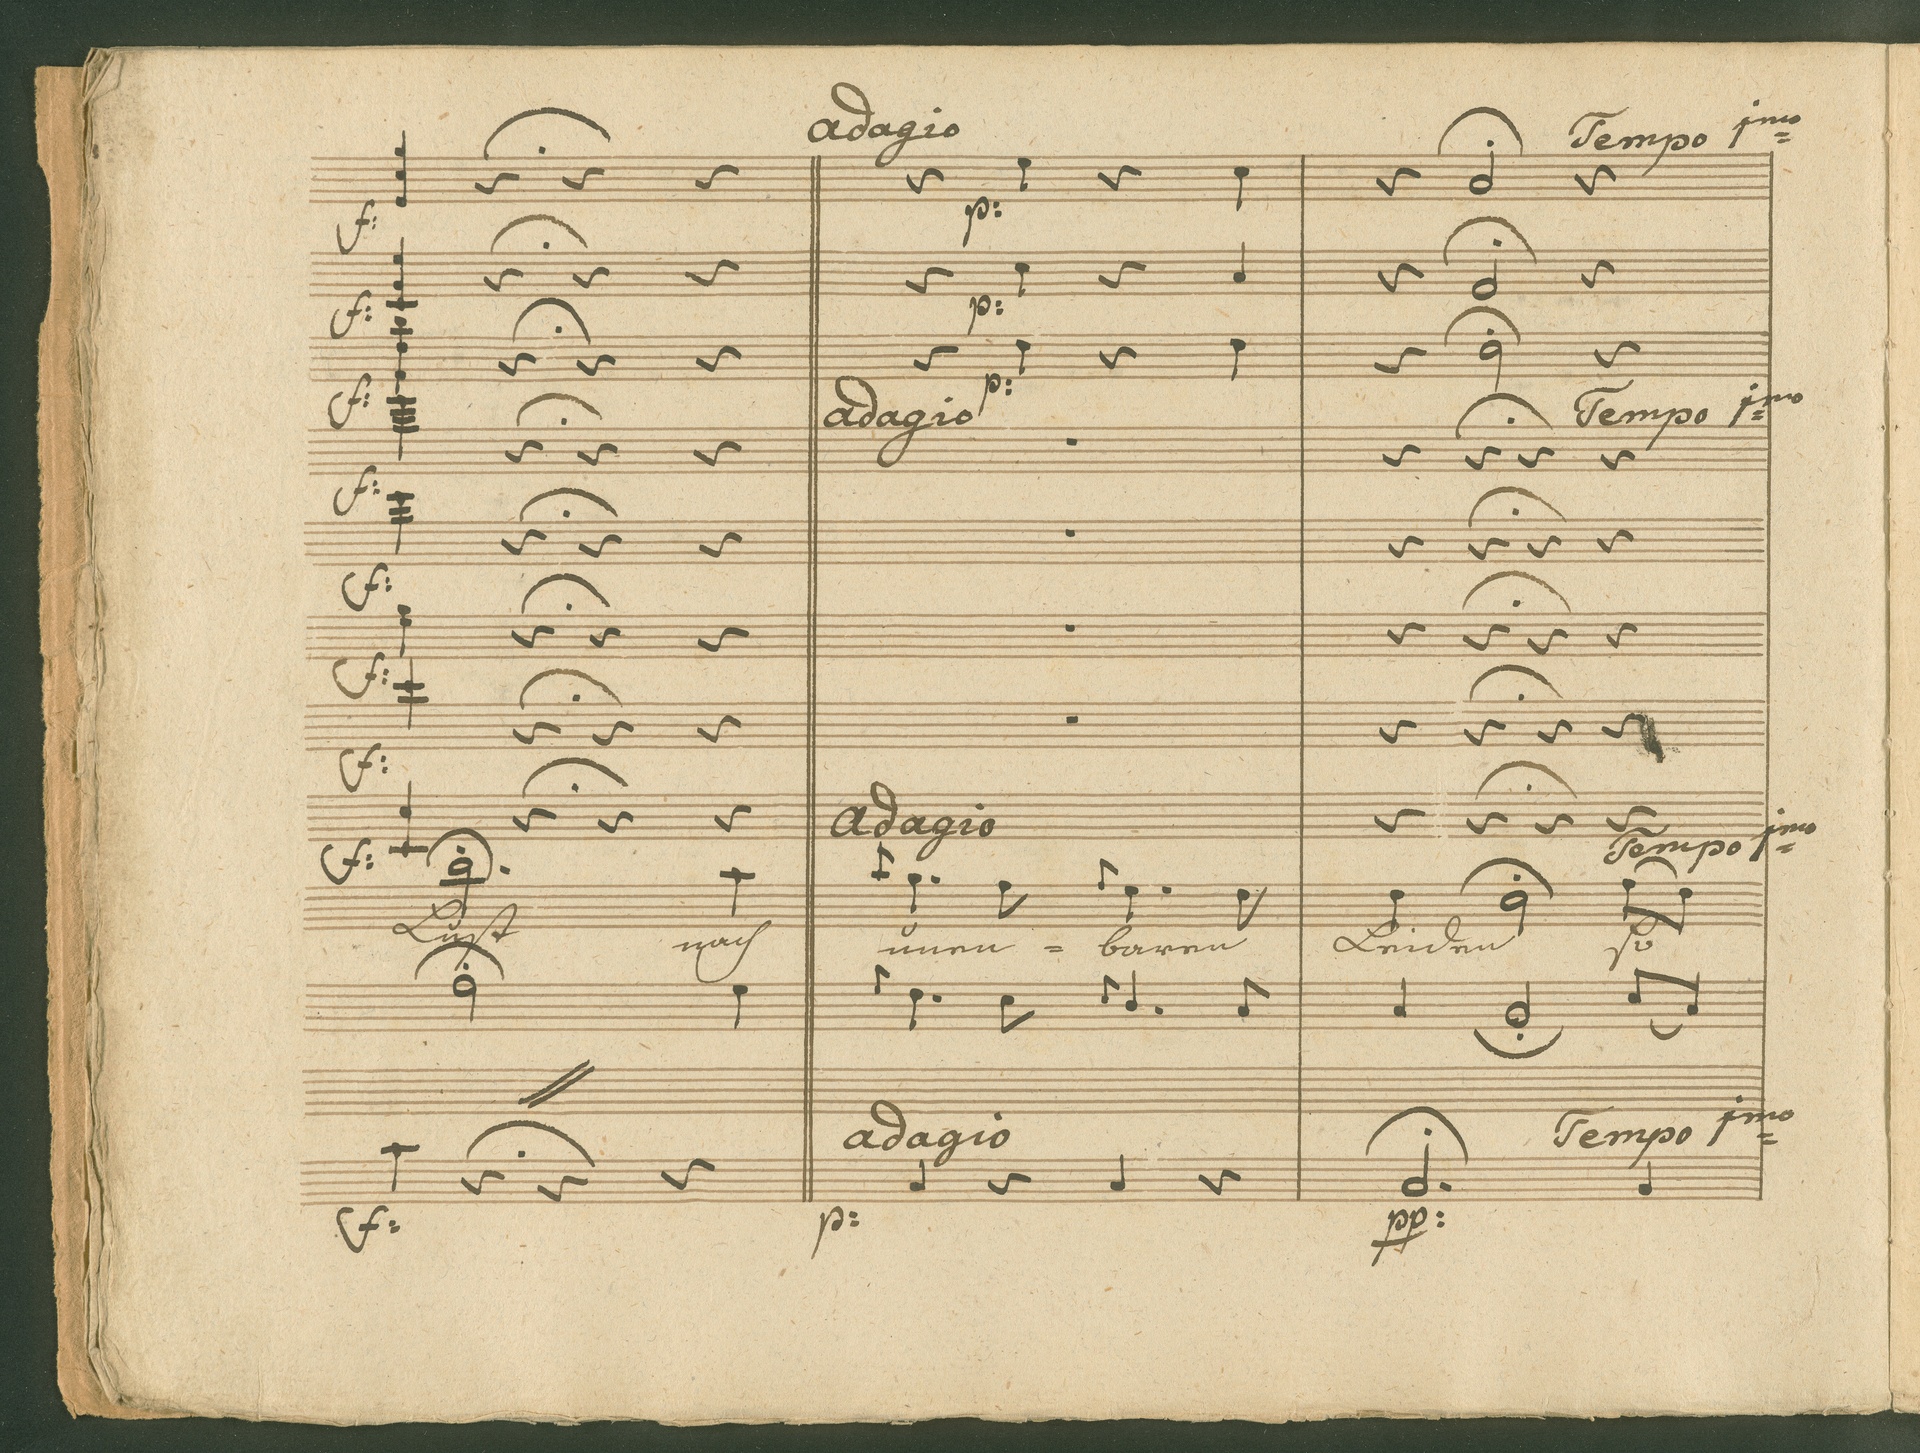 adagio Tempo jmo
f: p:
f: p:
f: p:
adagio Tempo jmo
f:
f:
f:
f:
adagio
f: Tempo jmo
Lust nach unen = baren Leiden so
adagio Tempo jmo
f: p: pp: